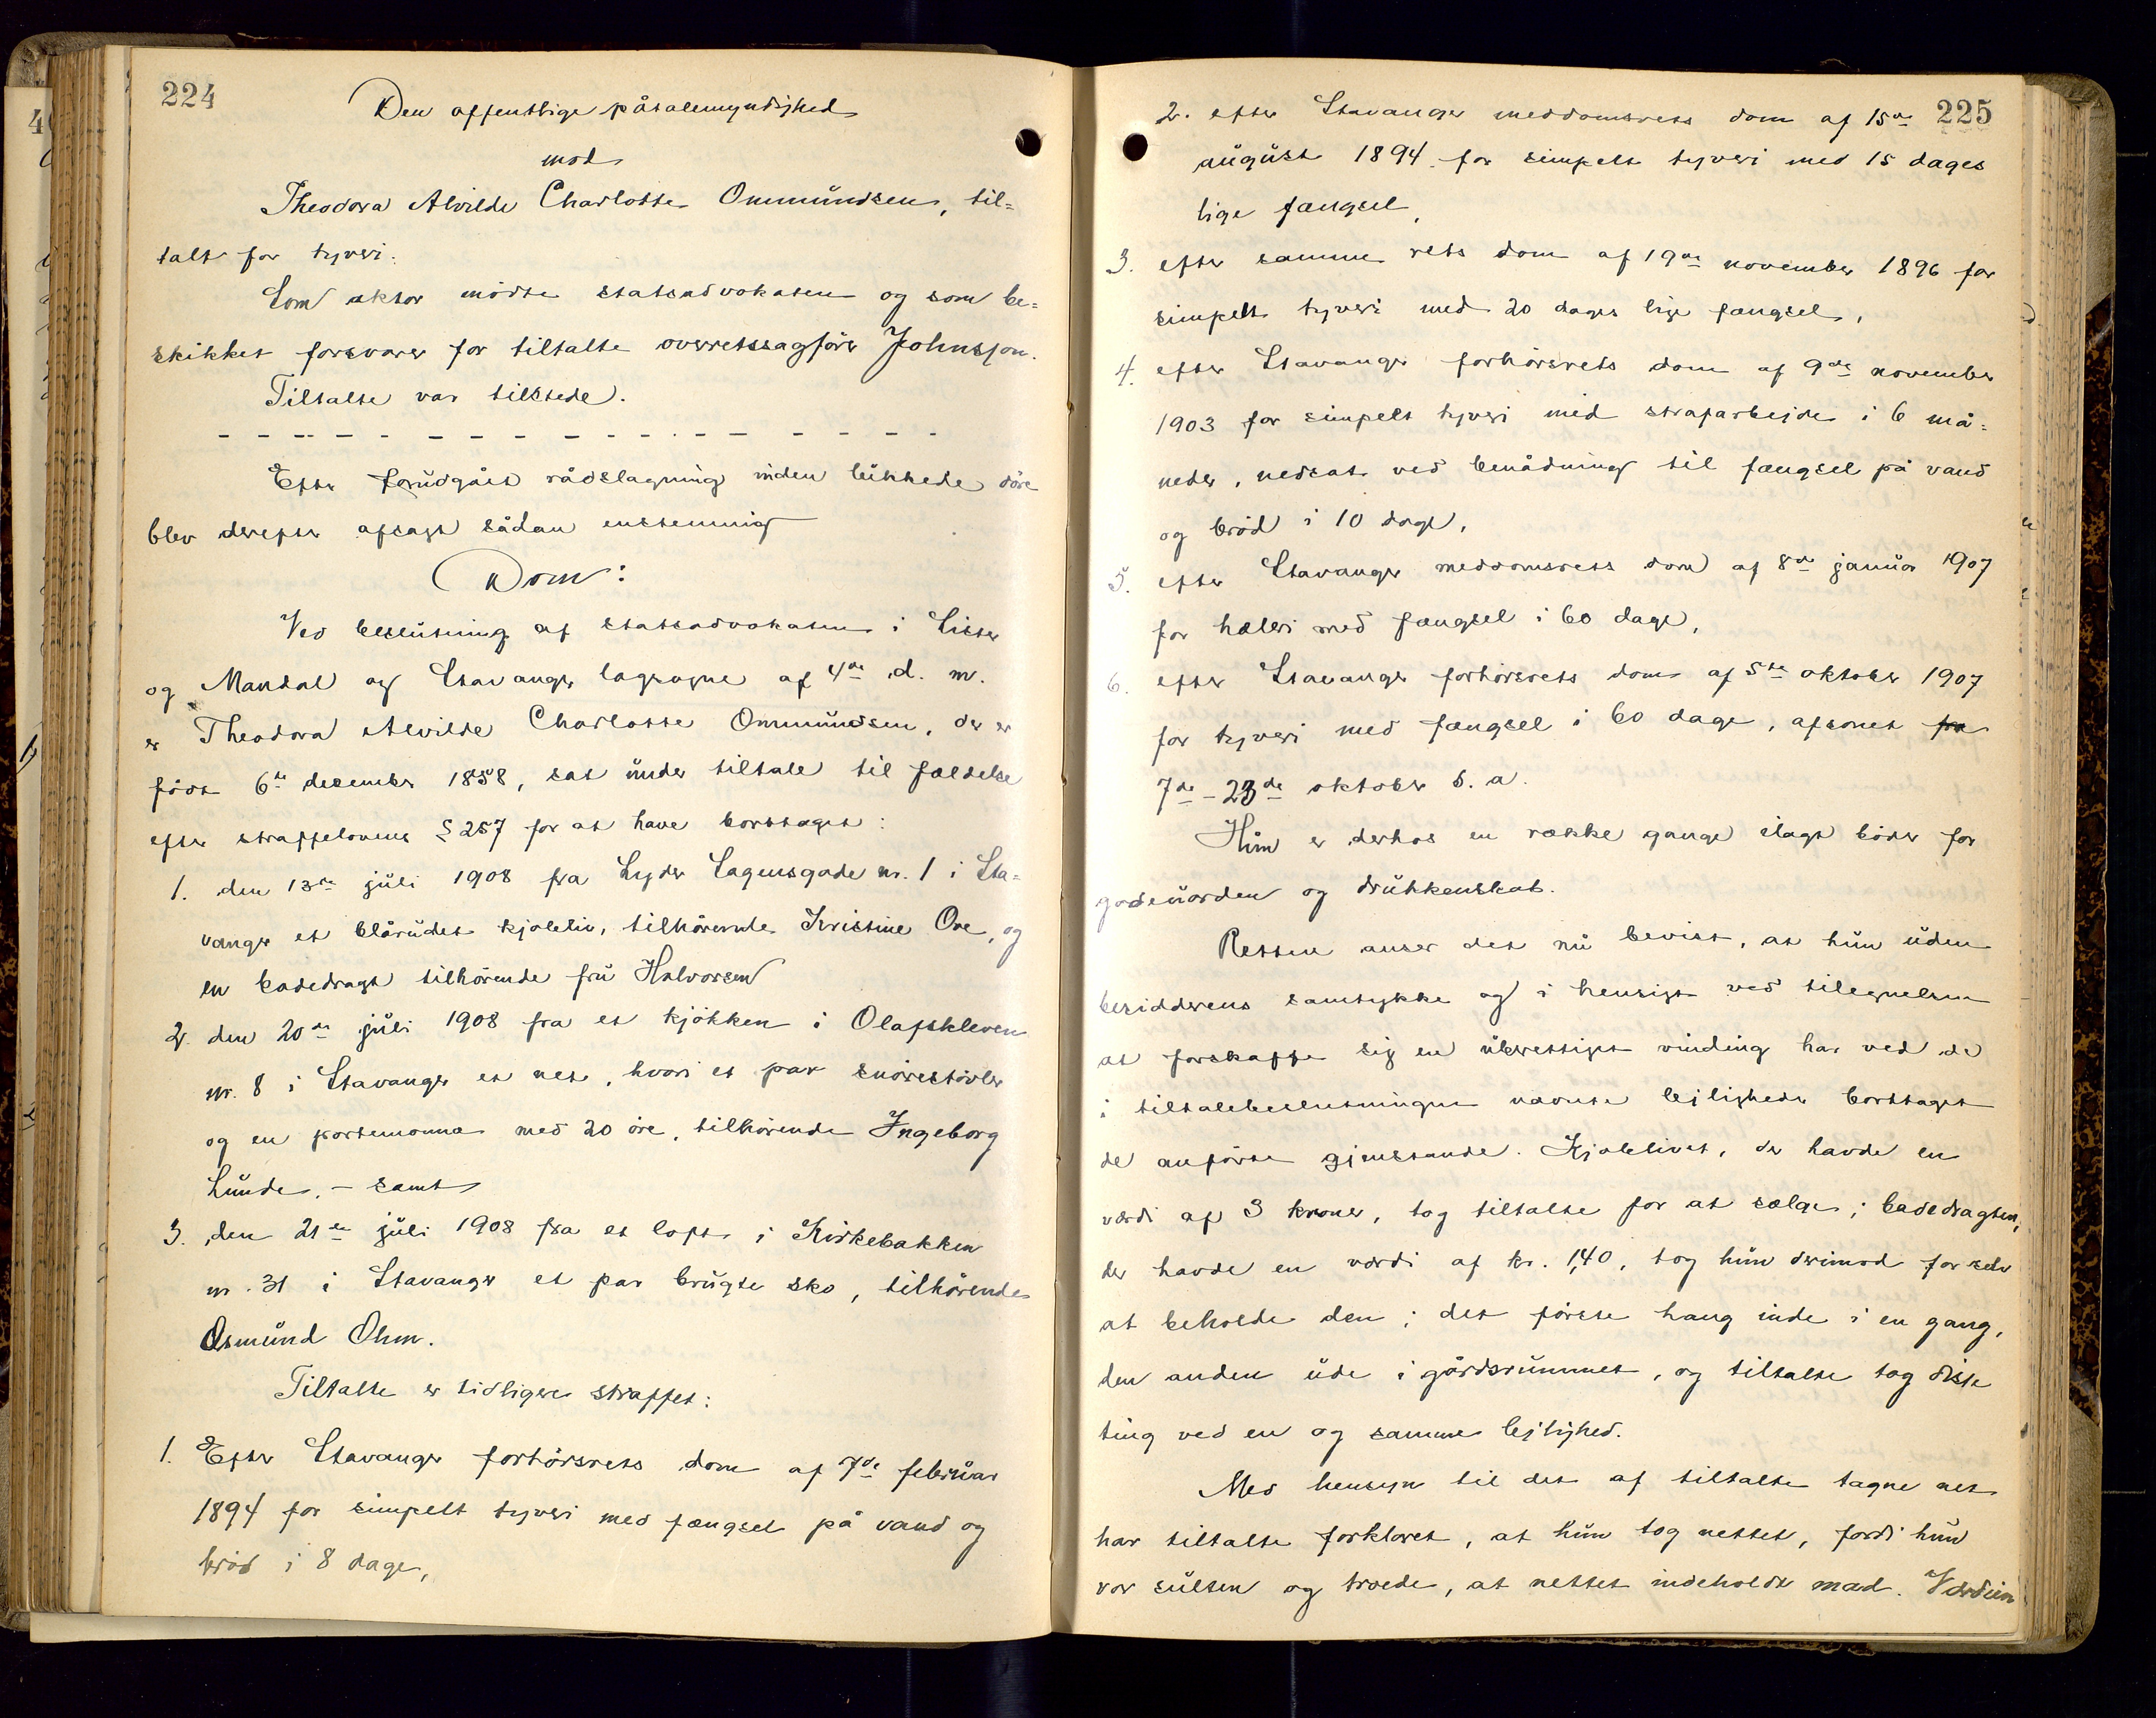 224
Den offentlige påtalemyndighed
mod
Theodora Alvilde Charlotte Ommundsen, til=
talt for tyveri.
Som aktor mödte statsadvokaten og som be=
skikket forsvarer for tiltalte overretssagförer Johnsson.
Tiltalte var tilstede.
Efter forudgået rådslagning inden lukkede döre
blev derefter afsagt sådan enstemmig
Dom:
Ved beslutning af statsadvokaten i Lister
og Mandal og Stavanger lagsogne af 4de d. m.
er Theodora Alvilde Charlotte Ommundsen, der er
född 6te december 1858, sat under tiltale til fældelse
efter straffelovens § 257 for at have borttaget:
1. den 13de juli 1908 fra Lyder Sagensgade nr. 1 i Sta=
vanger et blårudet kjoleliv, tilhörende Kristine Ore, og
en badedragt tilhörende fru Halvorsen
2. den 20de juli 1908 fra et kjökken i Olafskleven
nr. 8 i Stavanger et net, hvori et par snörestövler
og en portemonna med 20 öre, tilhörende Ingeborg
Lunde, - samt
3. den 21de juli 1908 fra et loft i Kirkebakken
nr. 31 i Stavanger et par brugte sko, tilhörende
Osmund Ohm.
Tiltalte er tidligere straffet:
1. Efter Stavanger forhörsrets dom af 7de februar
1894 for simpelt tyveri med fængsel på vand og
bröd i 8 dage,
225
2. efter Stavanger meddomsrets dom af 15de
august 1894 for simpelt tyveri med 15 dages
lige fængsel,
3. efter samme rets dom af 19de november 1896 for
simpelt tyveri med 20 dages lige fængsel,
4. efter Stavanger forhörsrets dom af 9de november
1903 for simpelt tyveri med strafarbejde i 6 må=
neder, nedsat ved benådning til fængsel på vand
og bröd i 10 dage,
5. efter Stavanger meddomsrets dom af 8de januar 1907
for hæleri med fængsel i 60 dage,
6. efter Stavanger forhörsrets dom af 5te oktober 1907
for tyveri med fængsel i 60 dage, afsonet fra
7de - 23de oktober s. a.
Hun er derhos en række gange ilagt böder for
gadeuorden og drukkenskab.
Retten anser det nu bevist, at hun uden
besidderens samtykke og i hensigt ved tilegnelsen
at forskaffe sig en uberettiget vinding har ved de
i tiltalebeslutningen nævnte lejligheder borttaget
de anförte gjenstande. Kjolelivet, der havde en
værdi af 3 kroner, tog tiltalte for at sælge; badedragten,
der havde en værdi af kr. 1,40, tog hun derimod for selv
at beholde den; det förste hang inde i en gang,
den anden ude i gårdsrummet, og tiltalte tog disse
ting ved en og samme lejlighed.
Med hensyn til det af tiltalte tagne net
har tiltalte forklaret, at hun tog nettet, fordi hun
var sulten og troede, at nettet indeholdt mad. Værdien